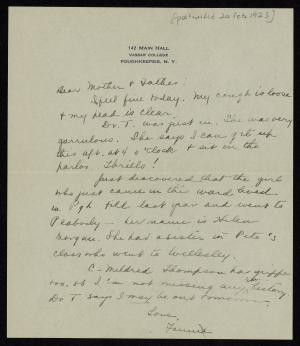 [postmarked 20 Feb. 1923]
142 MAIN HALL
VASSAR COLLEGE
POUGHKEEPSIE, N. Y.
Dear Mother & Father:
I feel fine today. My cough is loose
& my head is clear.
Dr. T. was just in. She was very
garrulous. She says I can get up
this aft. at 4 o'clock & sit in the
parlor. Thrills!
Just discovered that the girl
who just came in this ward lived
in Pgh till last year and went to
Peabody - her name is Helen
Morgan. She had a sister in Pete's
class who went to Wellesley.
C. Mildred Thompson has grippe
too, so I'm not missing any history
Dr T. says I may be out tomorrow.
Love,